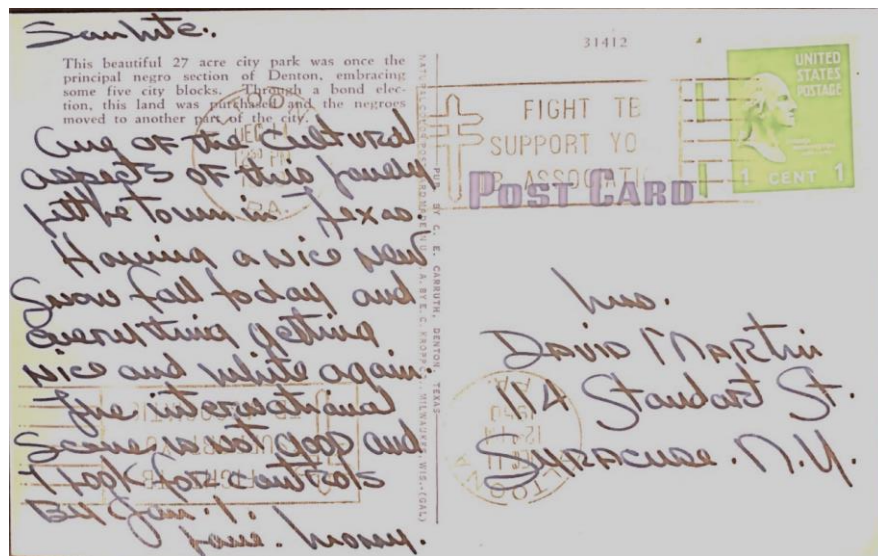 This beautiful 27 acre city park was once the
principal negro section of Denton, embracing
some five city blocks. Through a bond elec-
tion, this land was purchased and the negroes
moved to another part of the city.
of the cultural
aspects of this lovely
little town in Texas.
Having a nice new
Snow fall today and
everything getting
nice and white again.
The international
Scene is not good and
I look for controls
By Jan. 1.
Love. Mommy.
PUB. BY C. E. CARRUTH, DENTON, TEXAS
31412
FIGHT TB
SUPPORT YO
B ASSOCIATI
POST CARD
UNITED
STATES
POSTAGE
1 CENT 1
Mrs.
DAVID MARTIN
114 Standart St.
SYRACUSE. N.Y.